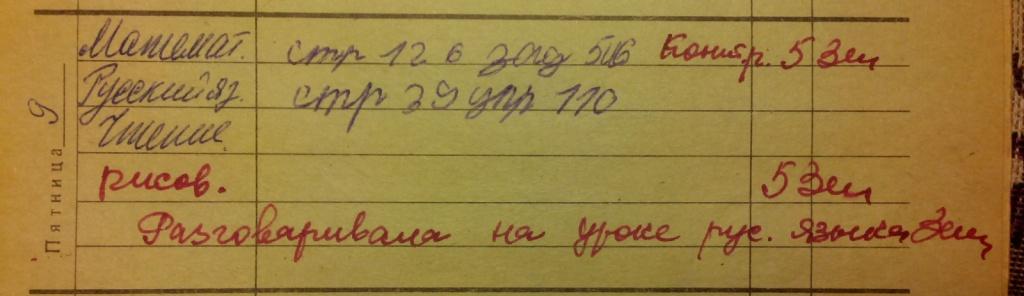 Пятница 9
Математ. стр 126 зад 516 Контр. 5 Зен
Русский яз. стр 39 упр 110
Чтение
рисов. 5 Зен
Разговаривала на уроке рус. языка Зен